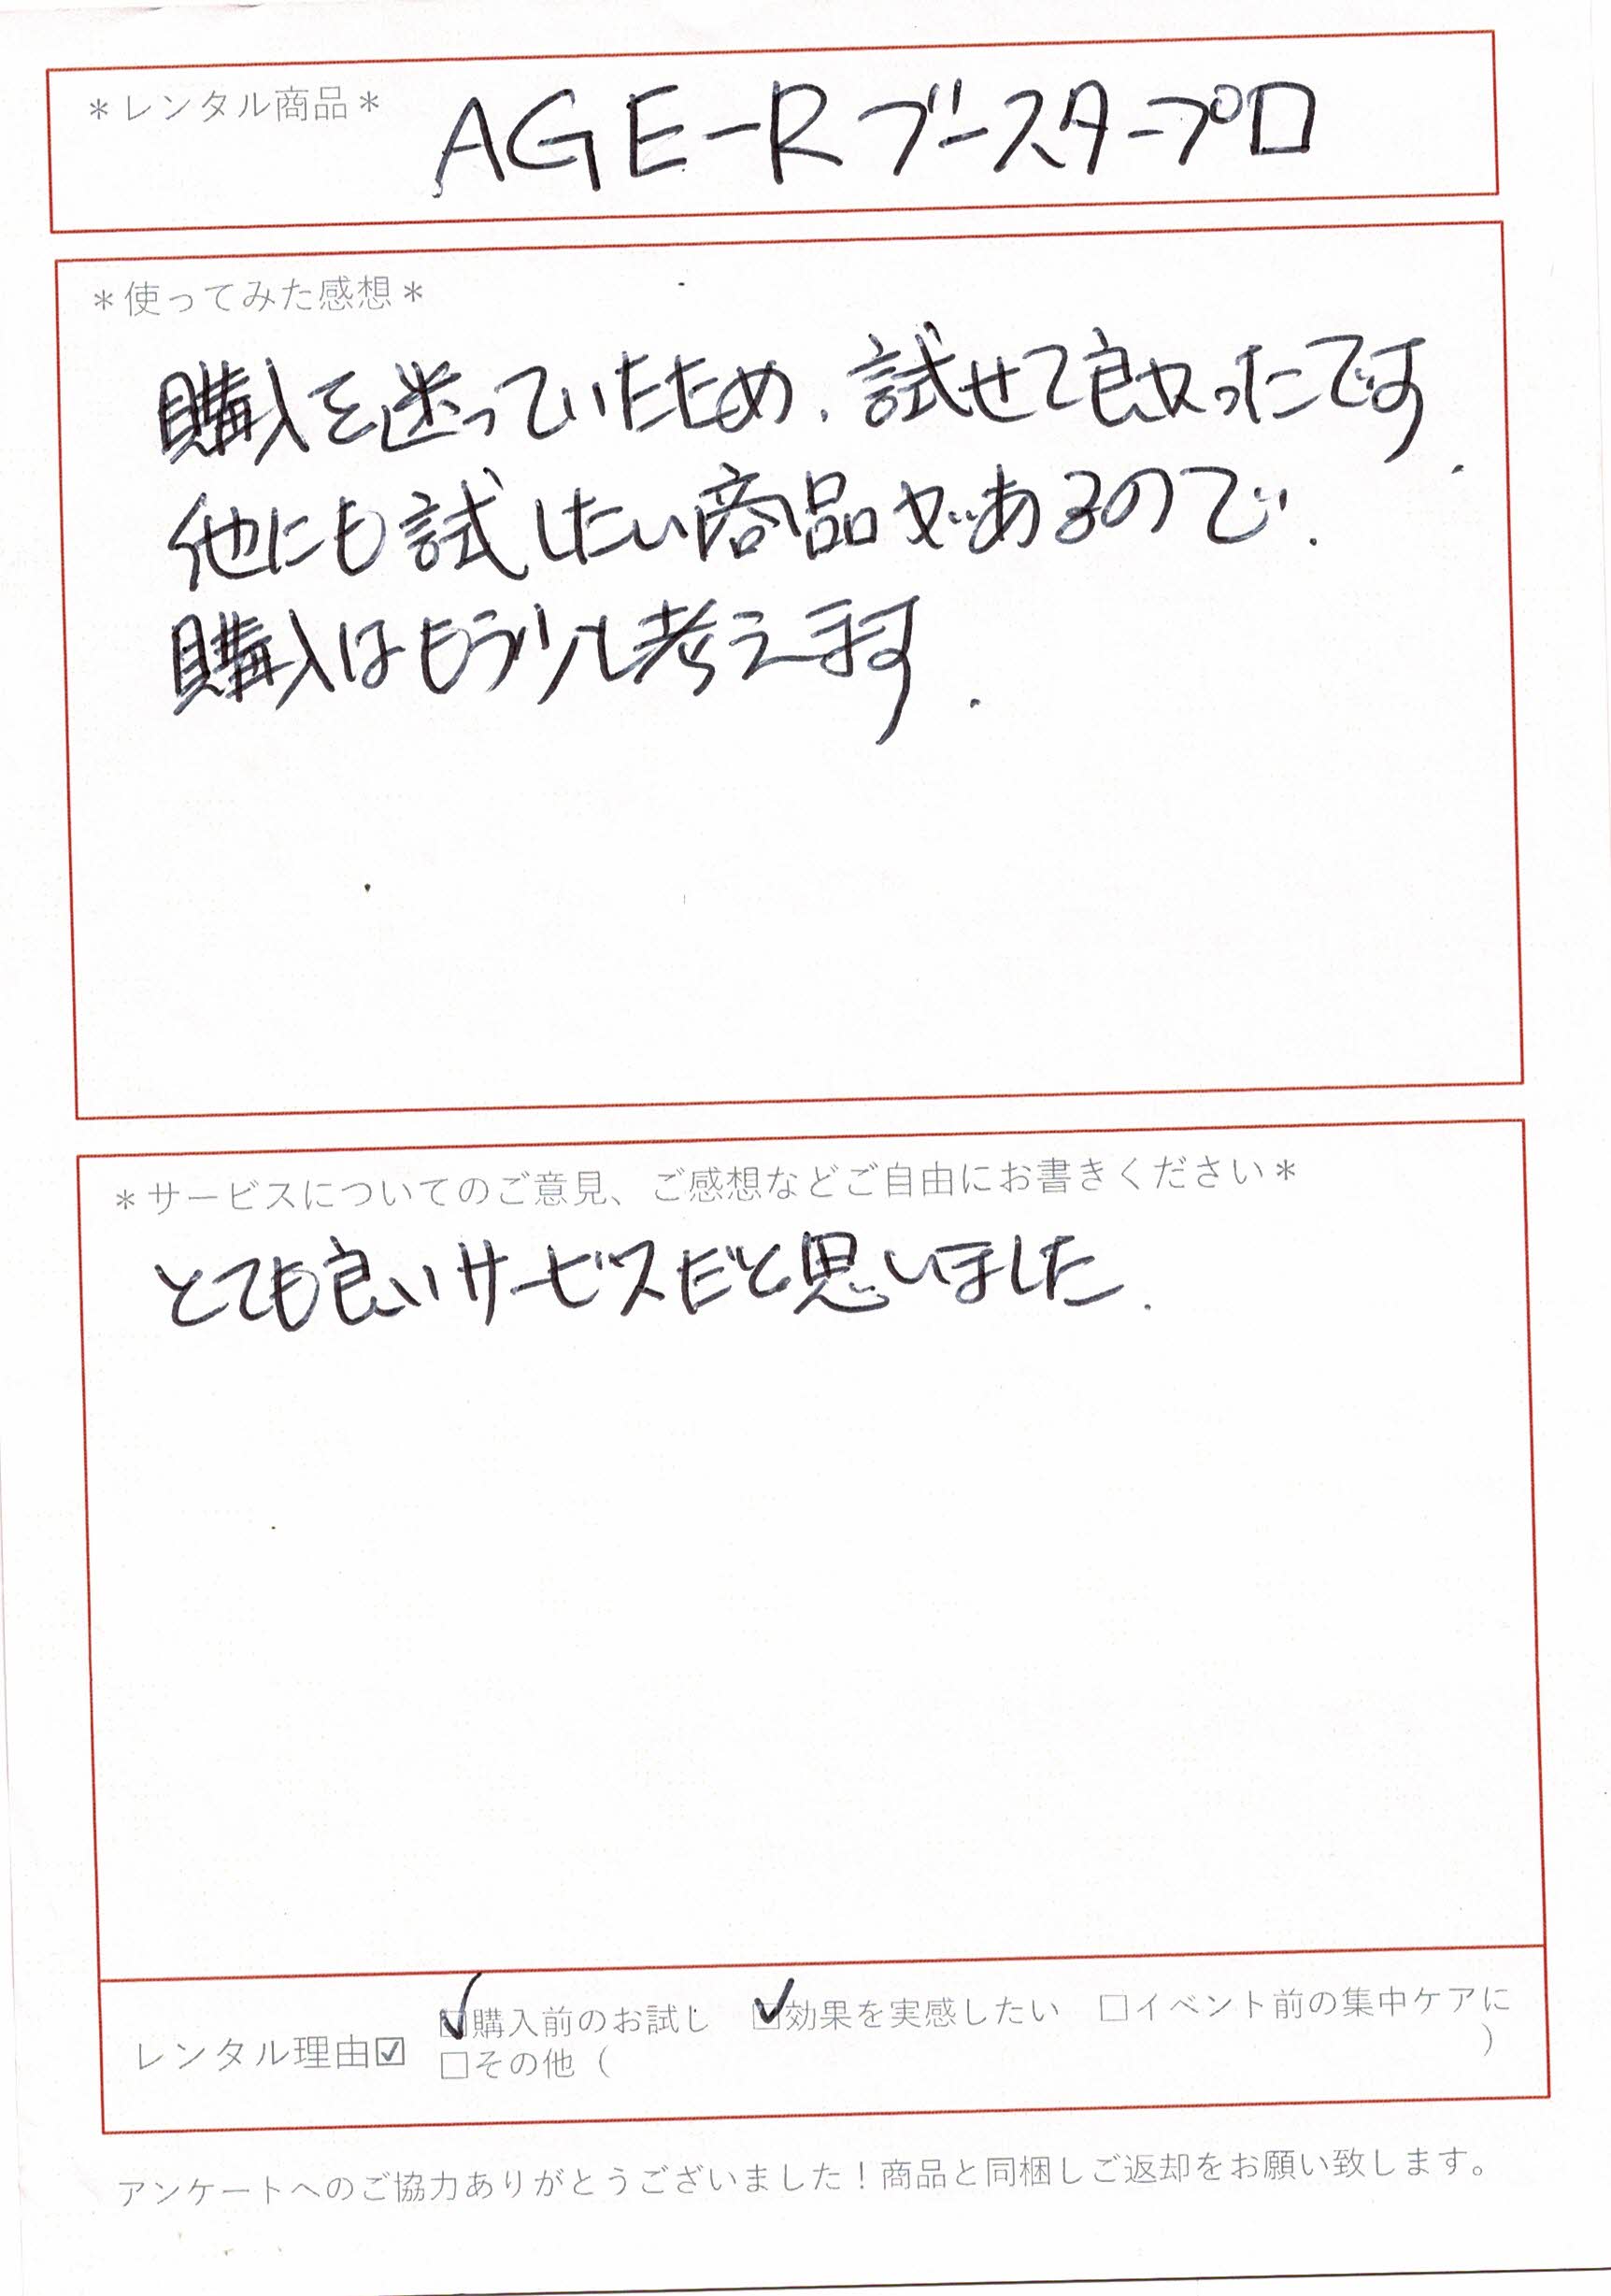 ＊レンタル商品＊ AGE-Rブースタープロ
＊使ってみた感想＊
購入を迷っていたため、試せて良かったです。
他にも試したい商品があるので、
購入はもう少し考えます。
＊サービスについてのご意見、ご感想などご自由にお書きください＊
とても良いサービスだと思いました。
レンタル理由☑ ☑購入前のお試し ☑効果を実感したい □イベント前の集中ケアに
□その他（ ）
アンケートへのご協力ありがとうございました！商品と同梱しご返却をお願い致します。